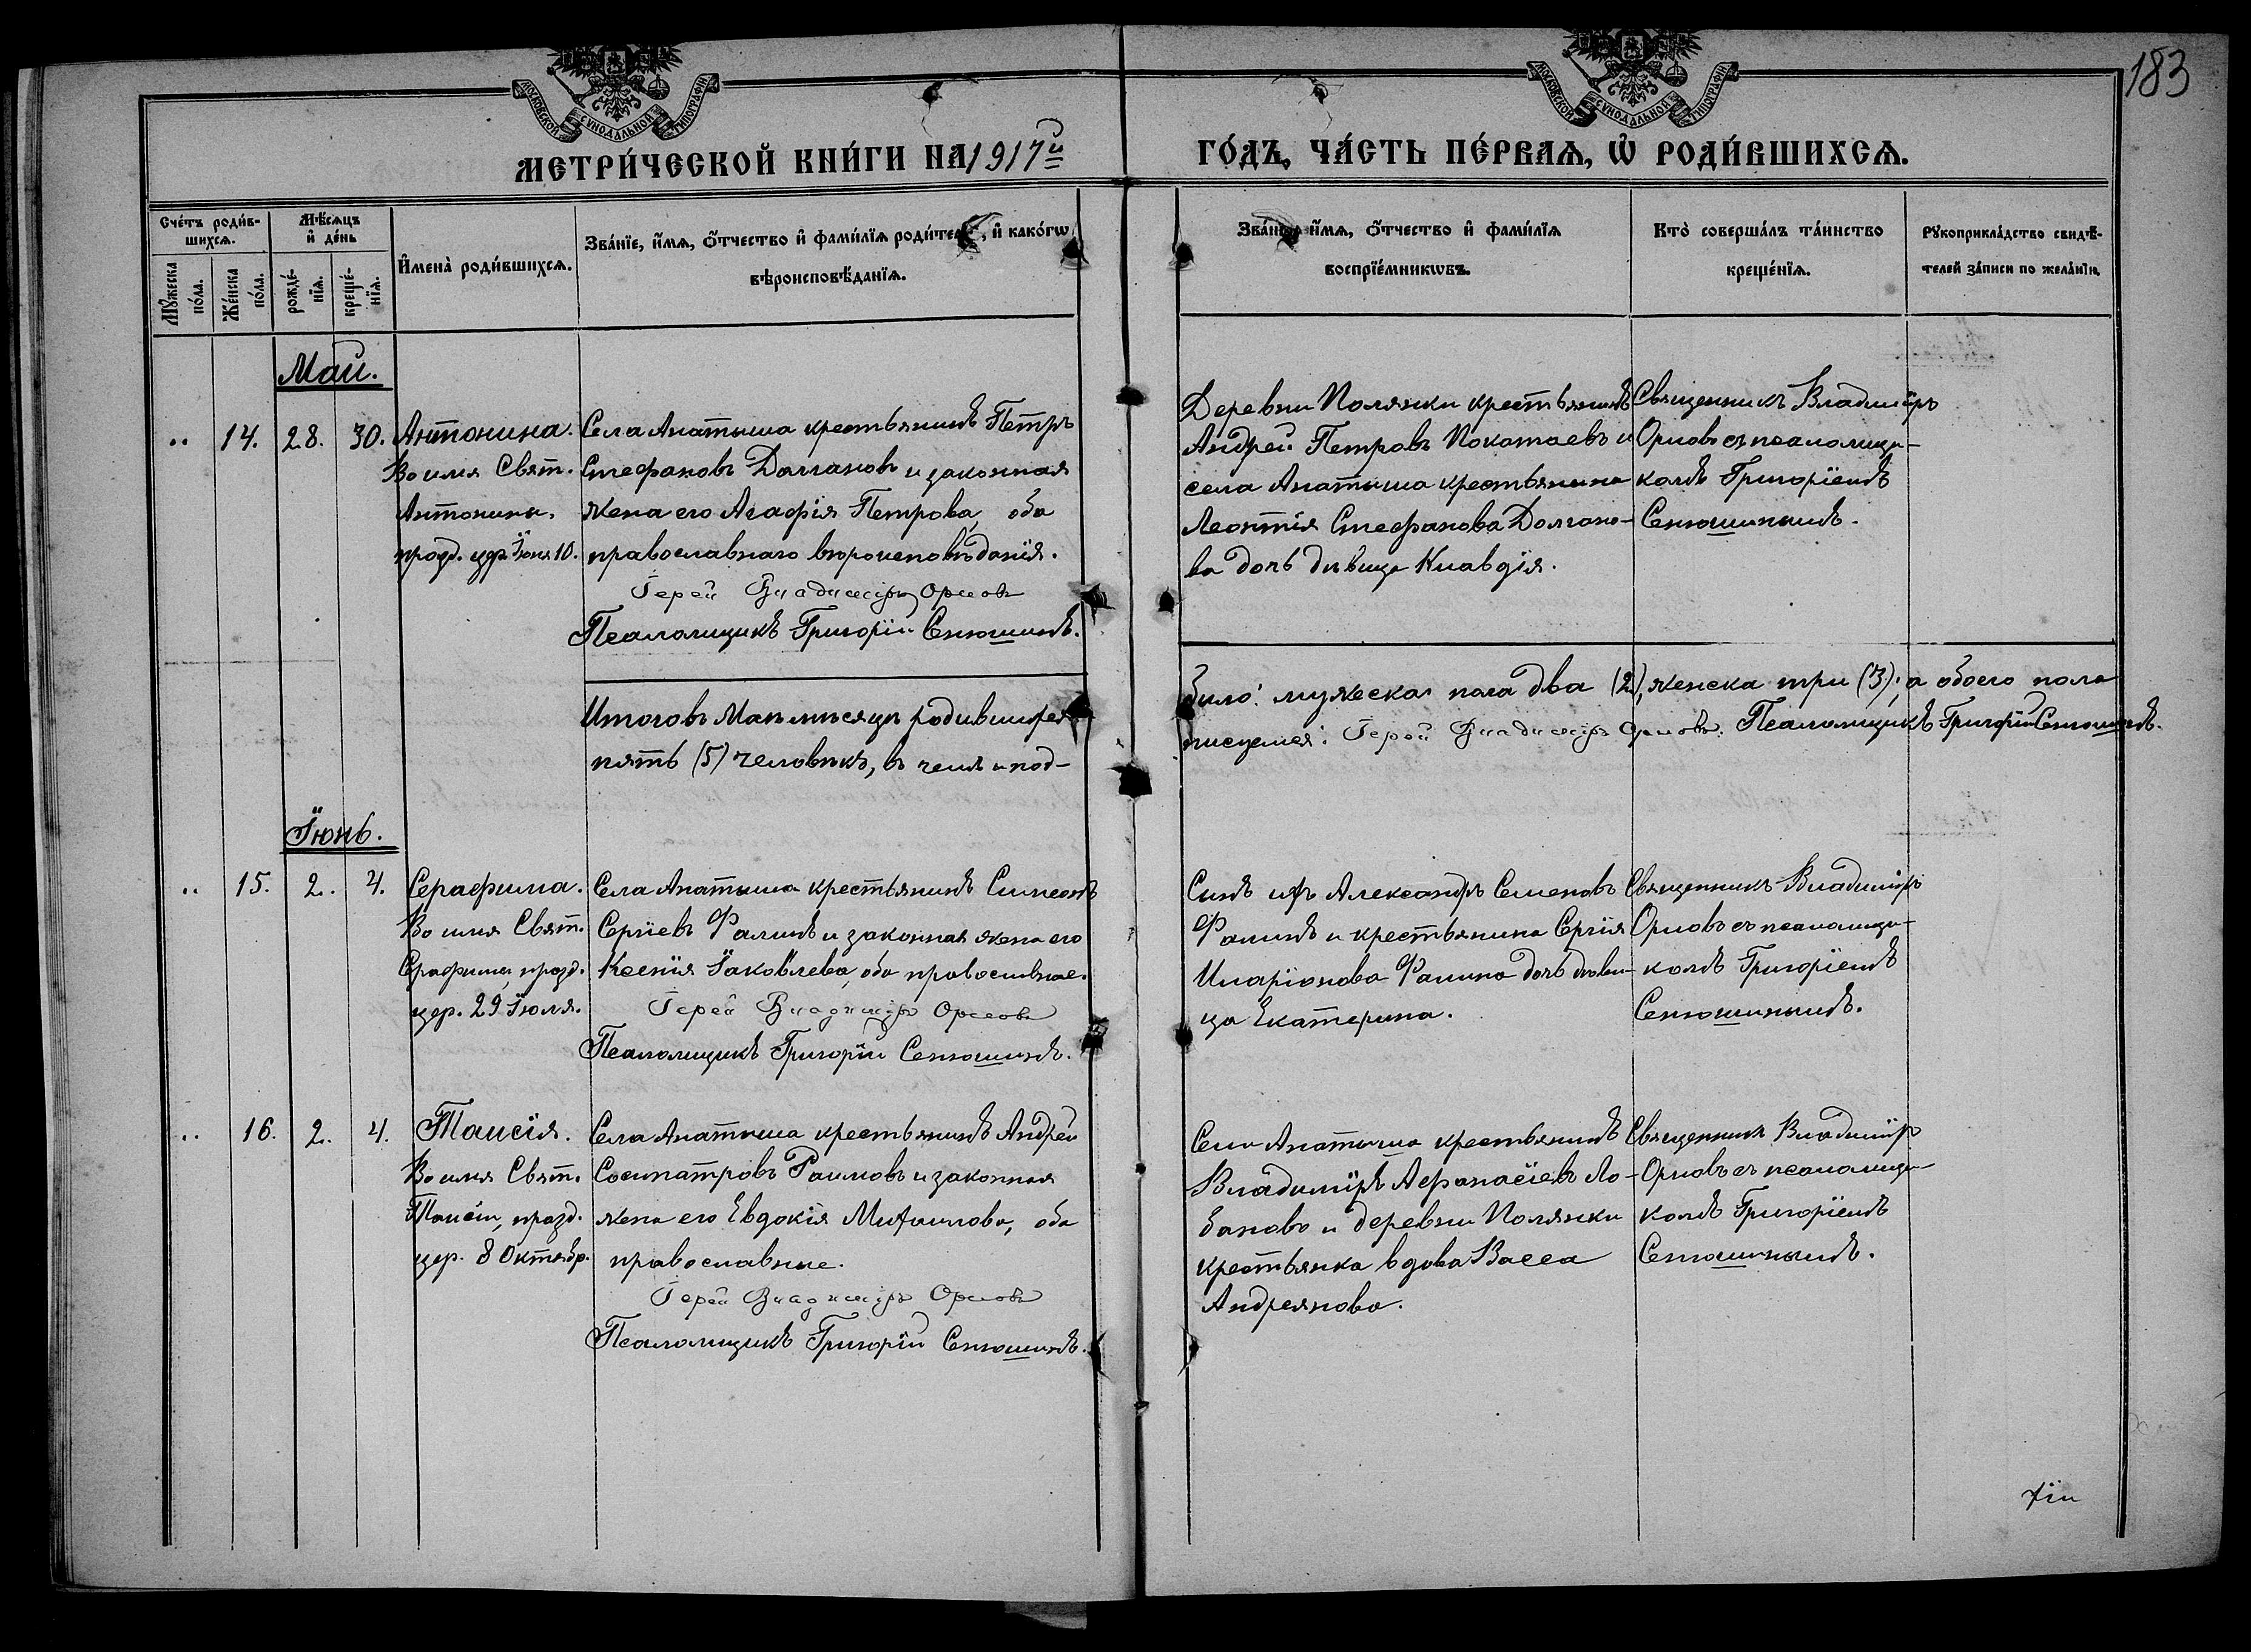 183
МОСКОВСКОЙ СУНОДАЛЬНОЙ ТИПОГРАФІИ
МОСКОВСКОЙ СУНОДАЛЬНОЙ ТИПОГРАФІИ
МЕТРИ́ЧЕСКОЙ КНИ́ГИ НА 1917й ГО́ДЪ, ЧА́СТЬ ПЕ́РВАѦ, Ѡ҆ РОДИ́ВШИХСѦ.
Сче́тъ роди́в-
шихсѧ.
Мꙋ́жеска по́ла.
Же́нска по́ла.
Мѣ́сѧцъ и҆ де́нь
рожде́-
нїѧ.
креще́-
нїѧ.
И҆мена̀ роди́вшихсѧ.
Зва́нїе, и҆́мѧ, ѻ҆́тчество и҆ фами́лїѧ роди́телей, и҆ како́гѡ
вѣроисповѣ́данїѧ.
Зва́нїе, и҆́мѧ, ѻ҆́тчество и҆ фами́лїѧ
воспрїе́мникѡвъ.
Кто̀ соверша́лъ та́инство
креще́нїѧ.
Рꙋкоприкла́дство свидѣ́-
телей за́писи по жела́нїю.
Май.
.. 14. 28. 30.
Антонина.
Во имя Свят.
Антонины,
празд. цер. Іюня 10.
Села Анатыша крестьянинъ Петръ
Стефановъ Долгановъ и законная
жена его Агафія Петрова, оба
православнаго вѣроисповѣданія.
Іерей Владиміръ Орловъ
Псаломщикъ Григорій Сенюшинъ.
Деревни Полянки крестьянинъ
Андрей Петровъ Покатаевъ и
села Анатыша крестьянина
Леонтія Стефанова Долгано-
ва дочь дѣвица Клавдія.
Священникъ Владиміръ
Орловъ съ псаломщи-
комъ Григоріемъ
Сенюшинымъ.
Итого въ Маѣ мѣсяцѣ родившихся
было: мужеска пола два (2), женска три (3); а обоего пола
пять (5) человѣкъ, въ чемъ и под-
писуемся: Іерей Владиміръ Орловъ. Псаломщикъ Григорій Сенюшинъ.
Іюнь.
.. 15. 2. 4.
Серафима.
Во имя Свят.
Серафимы, празд.
цер. 29 Іюля.
Села Анатыша крестьянинъ Симеонъ
Сергіевъ Фалинъ и законная жена его
Ксенія Іаковлева, оба православные.
Іерей Владиміръ Орловъ
Псаломщикъ Григорій Сенюшинъ.
Сынъ ихъ Александръ Семеновъ
Фалинъ и крестьянина Сергія
Иларіонова Фалина дочь дѣви-
ца Екатерина.
Священникъ Владиміръ
Орловъ съ псаломщи-
комъ Григоріемъ
Сенюшинымъ.
.. 16. 2. 4.
Таисія.
Во имя Свят.
Таисіи, празд.
цер. 8 Октябр.
Села Анатыша крестьянинъ Андрей
Сосипатровъ Раимовъ и законная
жена его Евдокія Михаилова, оба
православные.
Іерей Владиміръ Орловъ
Псаломщикъ Григорій Сенюшинъ.
Села Анатыша крестьянинъ
Владиміръ Афанасіевъ Ло-
бановъ и деревни Полянки
крестьянка вдова Васса
Андреянова.
Священникъ Владиміръ
Орловъ съ псаломщи-
комъ Григоріемъ
Сенюшинымъ.